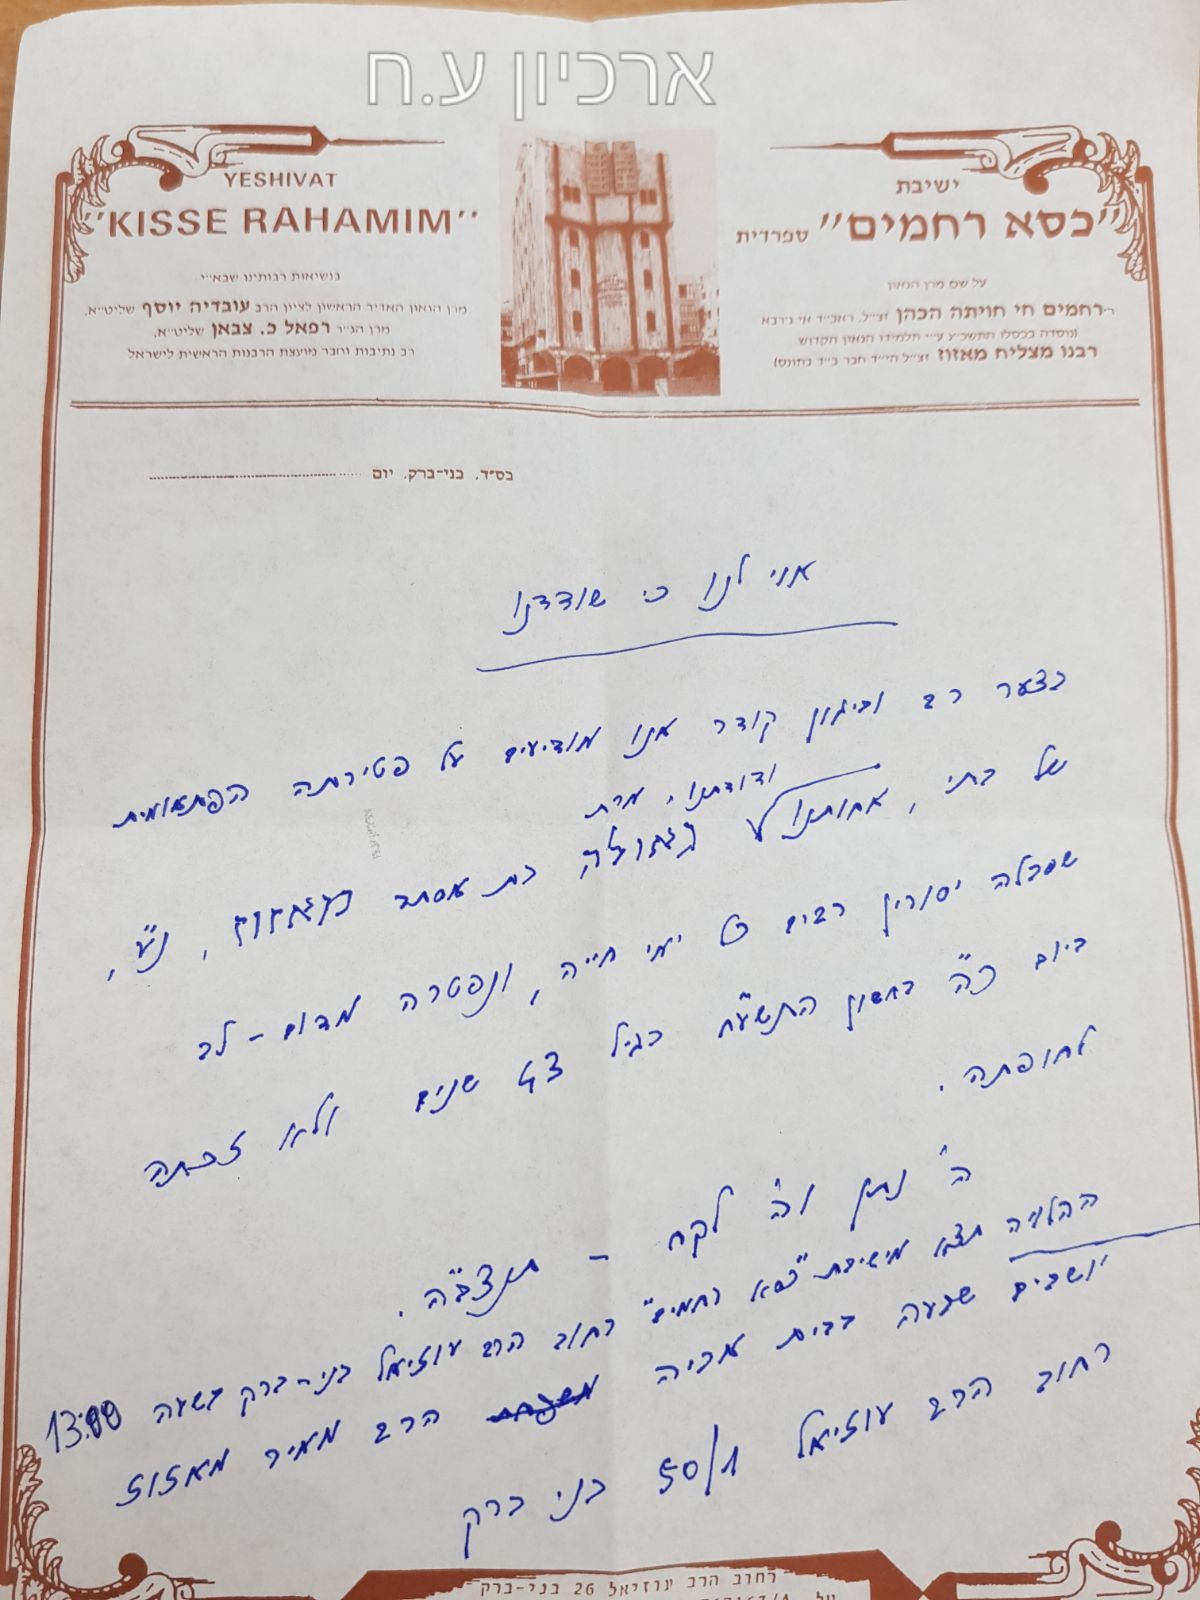 ארכיון ע.ח
ישיבת
"כסא רחמים" ספרדית
YESHIVAT
"KISSE RAHAMIM"
על שם מרן הגאון
ר' רחמים חי חויתה הכהן זצ"ל, ראב"ד אי ג'רבא
(נוסדה בכסלו התשכ"ג ע"י תלמידו הגאון הקדוש
רבנו מצליח מאזוז זצ"ל הי"ד חבר ב"ד בתונס)
בנשיאות רבותינו שבא"י
מרן הגאון האדיר הראשון לציון הרב עובדיה יוסף שליט"א,
מרן הגי"ר רפאל כ. צבאן שליט"א,
רב נתיבות וחבר מועצת הרבנות הראשית לישראל
בס"ד, בני-ברק, יום
אוי לנו כי שודדנו
בצער רב וביגון קודר אנו מודיעים על פטירתה הפתאומית
ודודתנו, מרת
של בתי, אחותנו בת אסתר מאזוז, נ"ע,
שסבלה יסורין רבים כל ימי חייה, ונפטרה מדום-לב
ביום כ"ה בחשון התשע"ח בגיל שנים ולא זכתה
לחופתה.
ה' נתן וה' לקח - תנצב"ה.
ההלויה תצא מישיבת "כסא רחמים" רחוב הרב עוזיאל בני-ברק בשעה 13:00
יושבים שבעה בבית אביה הרב מאיר מאזוז
רחוב הרב עוזיאל 50/ בני ברק
רחוב הרב עוזיאל 26 בני-ברק